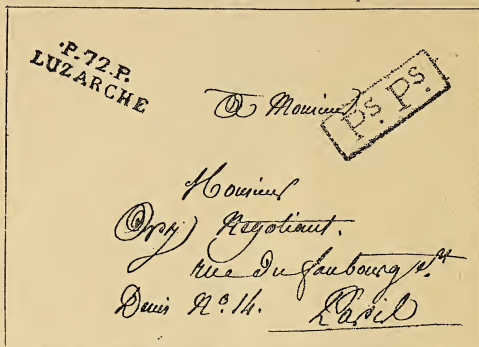 .P.72.P.
LUZARCHE
A Monsieur
Ps. Ps.
Monsieur
Négotiant.
rue du faubourg st.
Denis N.o 14. Paris